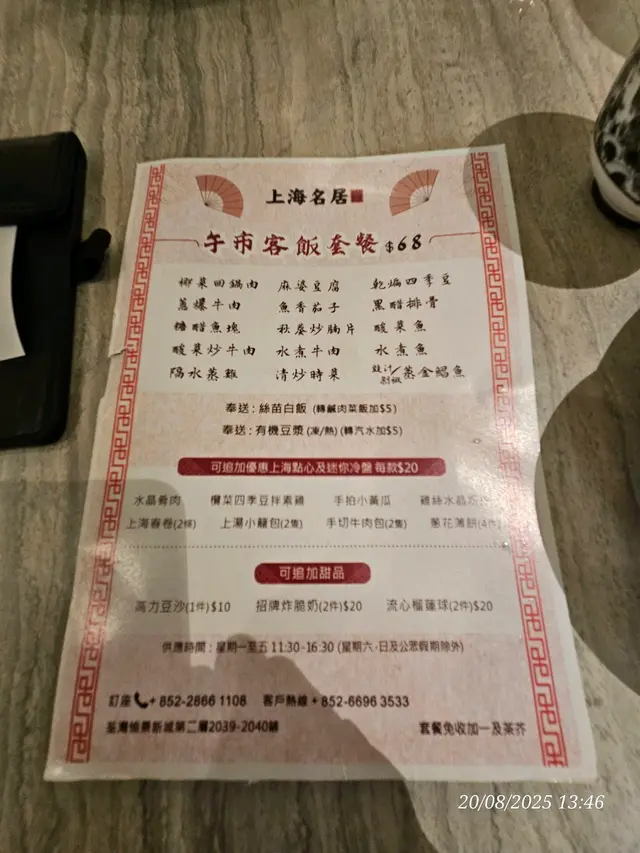 上海名居
午市客飯套餐 $68
椰菜回鍋肉 麻婆豆腐 乾煸四季豆
蔥爆牛肉 魚香茄子 黑醋排骨
糖醋魚塊 秋葵炒腩片 酸菜魚
酸菜炒牛肉 水煮牛肉 水煮魚
隔水蒸雞 清炒時菜 豉汁/剁椒蒸金鯧魚
奉送 : 絲苗白飯 (轉鹹肉菜飯加$5)
奉送 : 有機豆漿 (凍/熱) (轉汽水加$5)
可追加優惠上海點心及迷你冷盤 每款$20
水晶肴肉 欖菜四季豆拌素雞 手拍小黃瓜 雞絲水晶粉
上海春卷(2條) 上湯小籠包(2隻) 手切牛肉包(2隻) 蔥花薄餅(4件
可追加甜品
高力豆沙(1件)$10 招牌炸脆奶(2件)$20 流心榴蓮球(2件)$20
供應時間 : 星期一至五 11:30 -16:30 (星期六 ·日及公眾假期除外)
訂座 + 852-2866 1108 客戶熱線 + 852-6696 3533
荃灣愉景新城第二層2039-2040舖 套餐免收加一及茶芥
20/08/2025 13:46